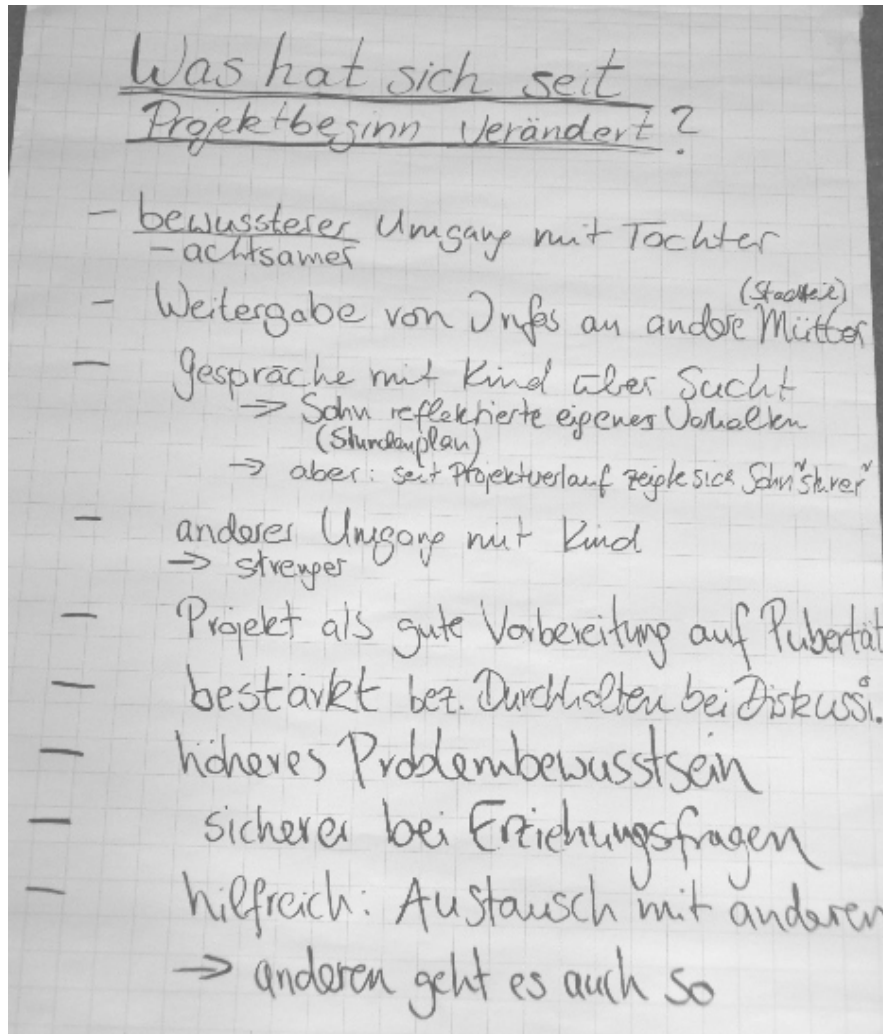 Was hat sich seit
Projektbeginn verändert?
- bewussterer Umgang mit Tochter
- achtsamer
(Stadtteil)
- Weitergabe von Infos an andere Mütter
- Gespräche mit Kind über Sucht
→ Sohn reflektierte eigenes Verhalten
(Stundenplan)
→ aber: seit Projektverlauf zeigte sich Sohn
- anderer Umgang mit Kind
→ strenger
- Projekt als gute Vorbereitung auf Pubertät
- bestärkt bez. Durchhalten bei Diskussi.
- höheres Problembewusstsein
- sicherer bei Erziehungsfragen
- hilfreich: Austausch mit anderen
→ anderen geht es auch so